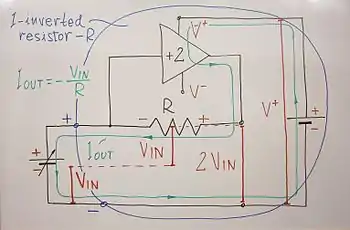 I-inverted
resistor -R
V⁺
+2
I_OUT = - V_IN/R
V⁻
R
V⁺
+
-
+
+
-
I_OUT
V_IN
2V_IN
+
-
V_IN
-